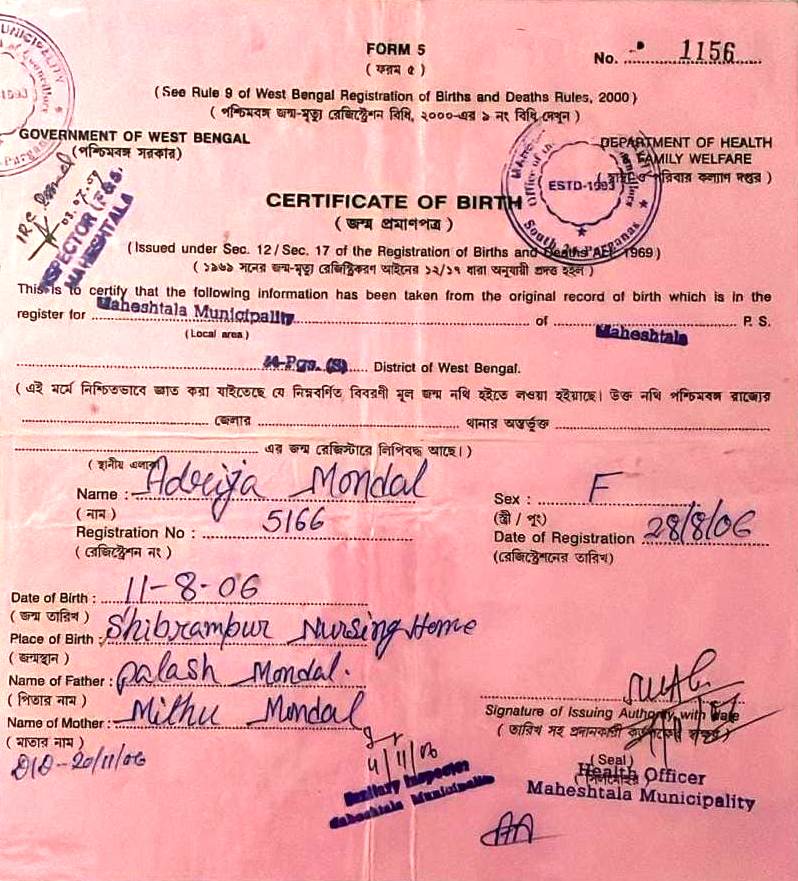 FORM 5
( ফরম ৫ )
No. 1156
(See Rule 9 of West Bengal Registration of Births and Deaths Rules, 2000)
( পশ্চিমবঙ্গ জন্ম-মৃত্যু রেজিস্ট্রেশন বিধি, ২০০০-এর ৯ নং বিধি দেখুন )
GOVERNMENT OF WEST BENGAL
(পশ্চিমবঙ্গ সরকার)
DEPARTMENT OF HEALTH
FAMILY WELFARE
ও পরিবার কল্যাণ দপ্তর )
ESTD-1993
Office of the
South 24 Parganas
INSPECTOR
MAHESHTALA
03.07.07
CERTIFICATE OF BIRTH
( জন্ম প্রমাণপত্র )
(Issued under Sec. 12/Sec. 17 of the Registration of Births and Deaths Act, 1969)
( ১৯৬৯ সনের জন্ম-মৃত্যু রেজিস্ট্রিকরণ আইনের ১২/১৭ ধারা অনুযায়ী প্রদত্ত হইল )
This is to certify that the following information has been taken from the original record of birth which is in the
register for Maheshtala Municipality of Maheshtala P. S.
(Local area)
24-Pgs. (S) District of West Bengal.
( এই মর্মে নিশ্চিতভাবে জ্ঞাত করা যাইতেছে যে নিম্নবর্ণিত বিবরণী মূল জন্ম নথি হইতে লওয়া হইয়াছে। উক্ত নথি পশ্চিমবঙ্গ রাজ্যের
জেলার থানার অন্তর্ভূক্ত
এর জন্ম রেজিস্টারে লিপিবদ্ধ আছে।)
( স্থানীয় এলাকা
Name : Adrija Mondal
Sex : F
( নাম )
(স্ত্রী / পুং)
Registration No : 5166
Date of Registration 28/8/06
( রেজিস্ট্রেশন নং )
(রেজিস্ট্রেশনের তারিখ)
Date of Birth : 11-8-06
( জন্ম তারিখ )
Place of Birth : Shibrampur Nursing Home
( জন্মস্থান )
Name of Father : Palash Mondal.
( পিতার নাম )
Name of Mother : Mithu Mondal
( মাতার নাম )
Signature of Issuing Authority with Date
( তারিখ সহ প্রদানকারী
(Seal)
Health Officer
Maheshtala Municipality
20/11/06
4/11/06
Sanitary Inspector
Maheshtala Municipality